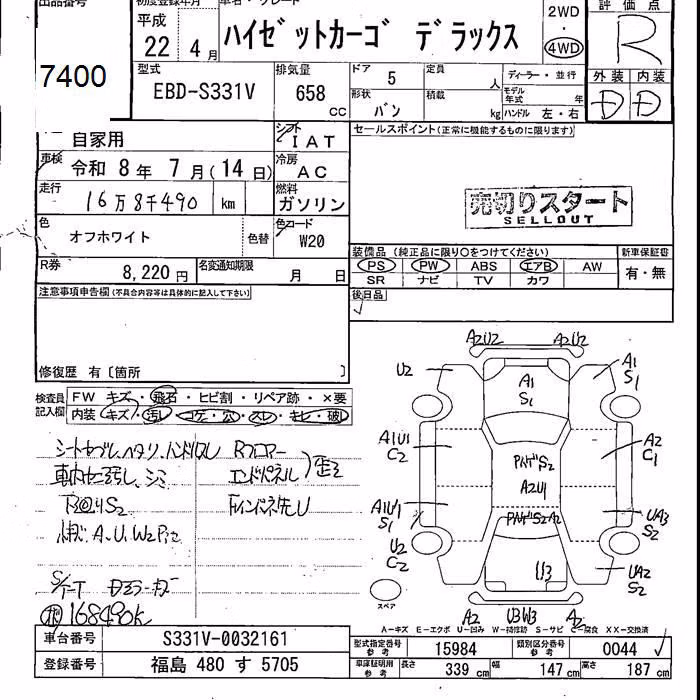 出品番号
7400
初度登録年月
平成
22年 4月
車名・グレード
ハイゼットカーゴ デラックス
2WD
・
4WD
評価点
R
型式
EBD-S331V
排気量
658
CC
ドア
5
定員
人
形状
バン
積載
kg
ディーラー・並行
モデル年式 年
ハンドル 左・右
外装 内装
D D
自家用
シフト
IAT
車検
令和 8年 7月(14日)
冷房
AC
走行
16万8千490 km
燃料
ガソリン
色
オフホワイト
色替
色コード
W20
R券
8,220円
名変通知期限
月 日
セールスポイント(正常に機能するものに限ります)
売切りスタート
SELLOUT
装備品 (純正品に限り○をつけてください)
新車保証書
PS PW ABS エアB AW
SR ナビ TV カワ
有・無
後日品
注意事項申告欄(不具合内容等は具体的に記入して下さい)
修復歴 有〔箇所 〕
検査員記入欄
FW キズ・飛石・ヒビ割・リペア跡・×要
内装 キズ・汚レ・コゲ・穴・スレ・キレ・破レ
168490k
A2U2 A2U2
U2
A1
S1
A1
S1
A1U1
C2
A2
C1
S2
A2U1
A1U1
S1
UA3
S2
U2
C2
U3
UA2
S2
スペア
A2 U3W3 A2
A-キズ E-エクボ U-凹み W-補修跡 S-サビ C-腐食 XX-交換済
車台番号
S331V-0032161
型式指定番号
参考
15984
類別区分番号
参考
0044
登録番号
福島 480 す 5705
車庫証明用
参考
長さ
339 cm
幅
147 cm
高さ
187 cm